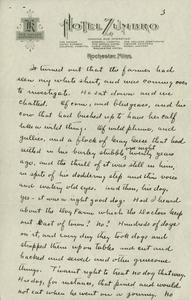 3
HOTEL ZUMBRO
Rochester, Minn.
So turned out that the farmer had
seen my white shirt, and was coming over
to investigate. He sat down and we
chatted. Of corn, and bluegrass, and his
sow that had bushed up to have her calf
like a wild thing. Of wild plums, and
gullies, and a flock of gray geese that had
settled in his barley stubble, twenty years
ago, and the thrill of it was still in him,
in spite of his doddering step and thin voice
and watery old eyes. And then, his dog,
yes - it was a right good dog. Had I heard
about the Dog Farm which the Doctors keep
out East of town? No? Hundreds of dogs
on it, and every day they took dogs and
strapped them upon tables and cut and
hacked and sewed and other gruesome
things. Twarnt right to treat No dog that way.
His dog, for instance, that pined and would
not eat when he went on a journey. No